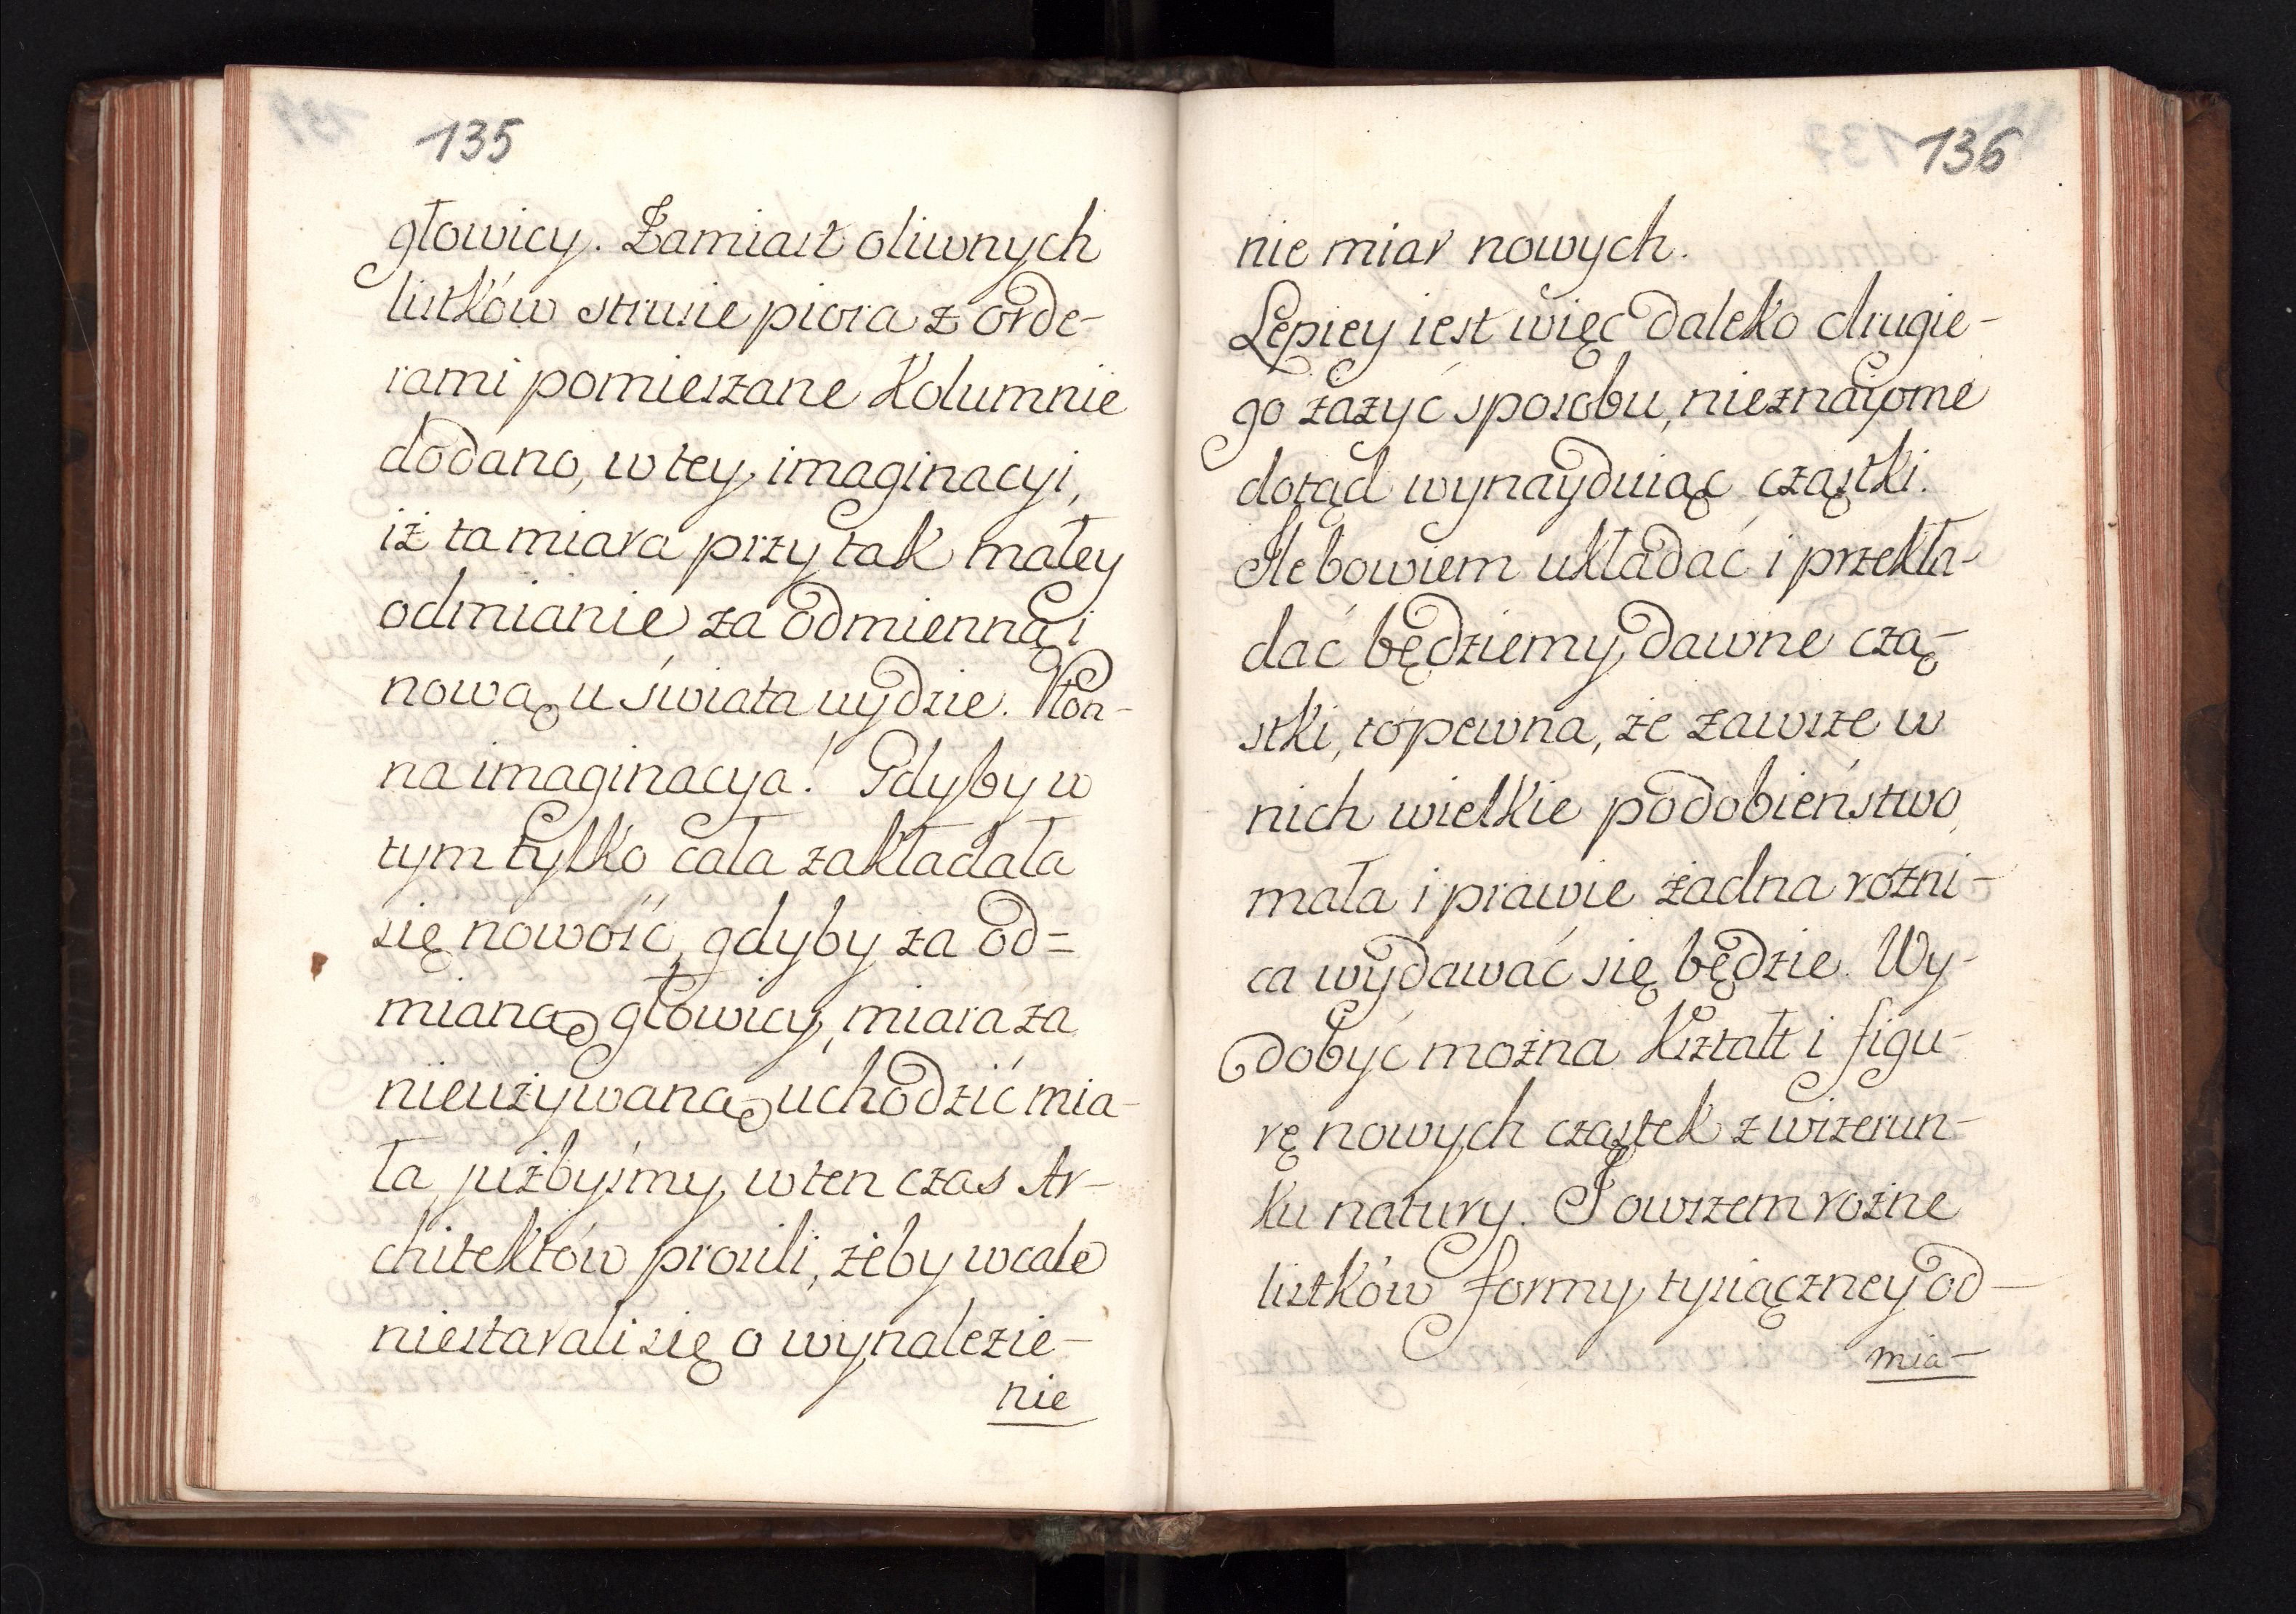 135
głowicy. Zamiast oliwnych
listków strusie piora z orde-
rami pomieszane Kolumnie
dodano, w tey imaginacyi,
iż ta miara przy tak małey
odmianie za odmienną i
nową u świata uydzie. Płoń-
na imaginacya! Gdyby w
tym tylko cała zakładała
się nowość, gdyby za od=
mianą głowicy, miara za
nieużywaną uchodzić mia-
ła, jużbyśmy w ten czas Ar-
chitektów prosili, żeby wcale
niestarali się o wynalezie-
nie
136
nie miar nowych.
Lepiey iest więc daleko drugie-
go zażyć sposobu, nieznajome
dotąd wynayduiąc cząstki.
Ile bowiem układać i przekła-
dać będziemy dawne czą-
stki, to pewna, że zawsze w
nich wielkie podobieństwo,
mała i prawie żadna rożni-
ca wydawać się będzie. Wy-
dobyć można Kształt i figu-
rę nowych cząstek z wizerun-
ku natury. I owszem rożne
listków formy, tysiączney od-
mia-